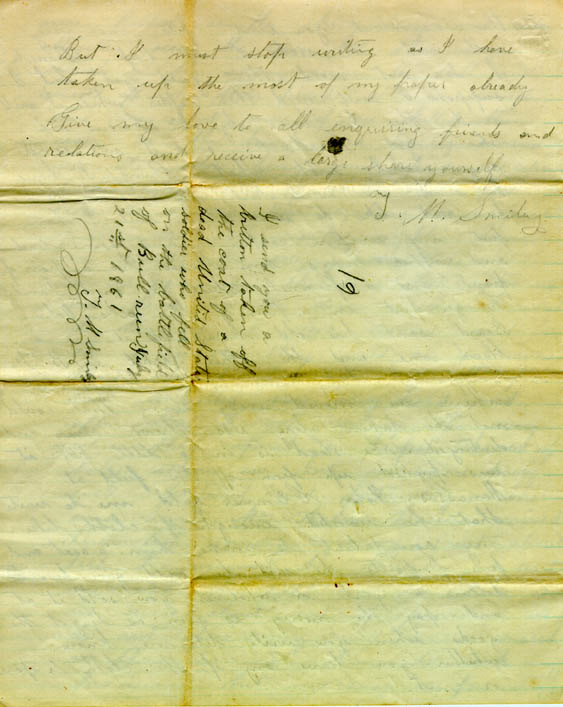 But I must stop writing as I have
taken up the most of my paper already
Give my love to all enquiring friends and
relations and receive a large share yourself
T. M. Smiley
19
I send you a
button taken off
the coat of a
dead United States
soldier who fell
on the battlefield
of Bull run July
21st 1861
T. M Smiley